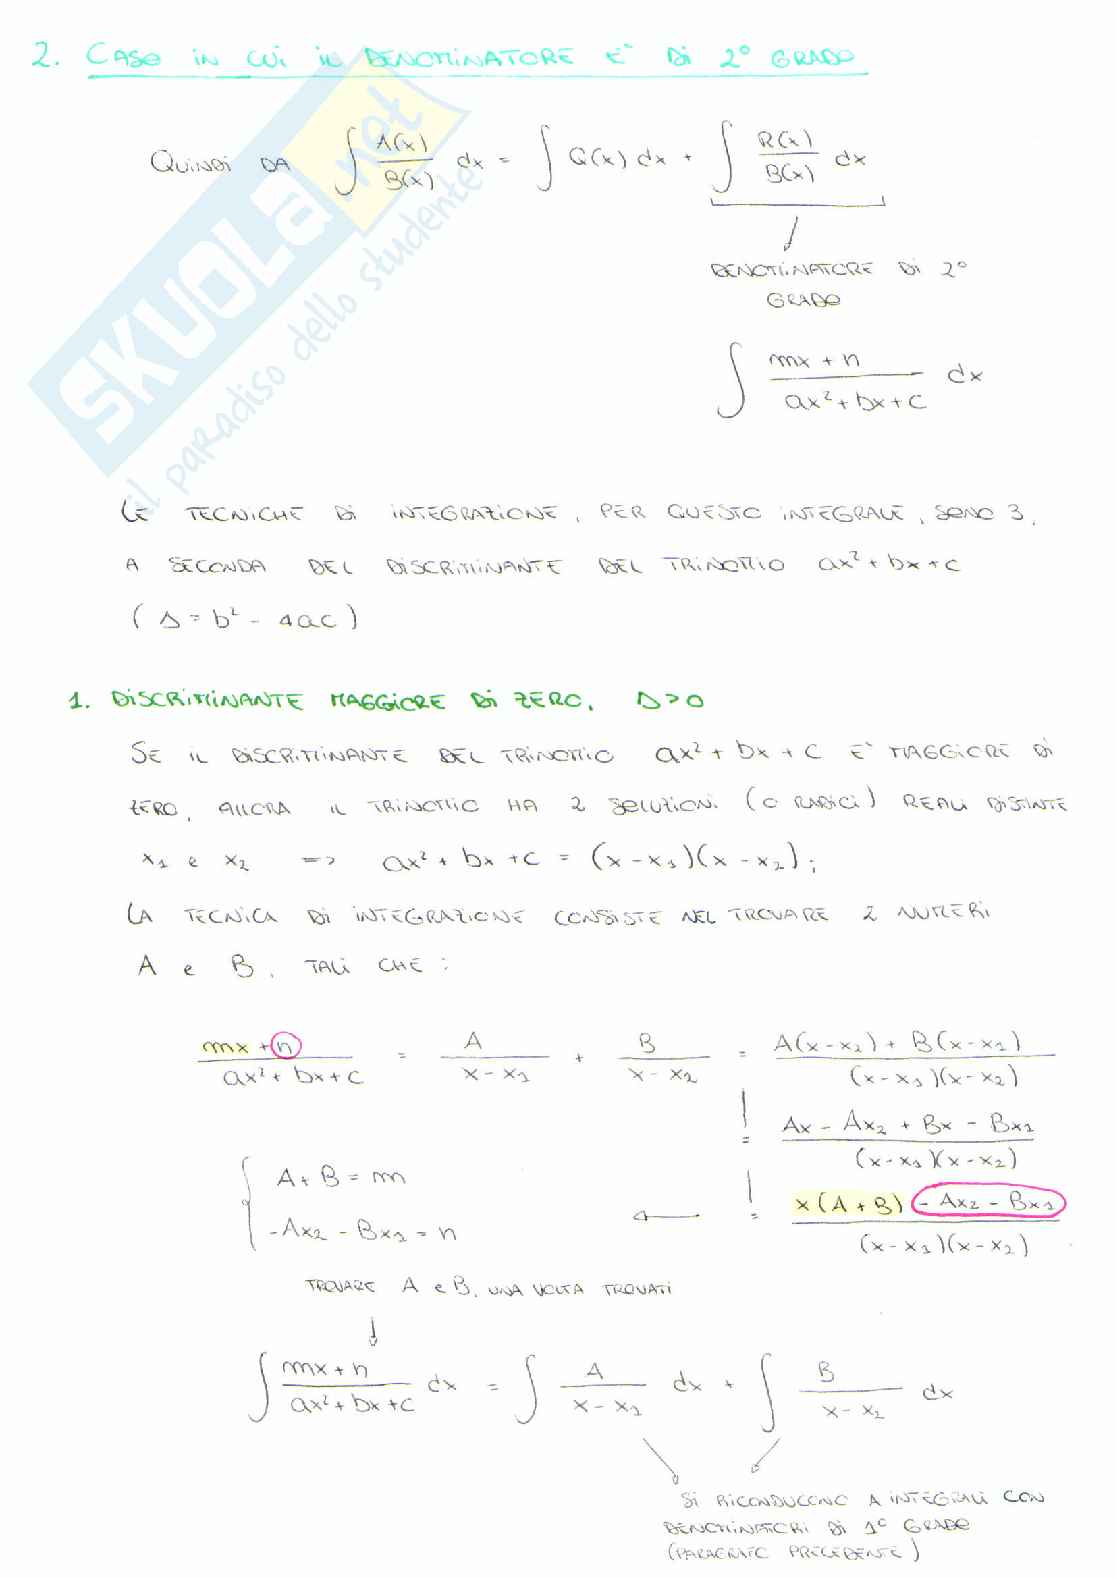 2. CASO IN CUI IL DENOMINATORE E' DI 2° GRADO
QUINDI DA ∫ A(x)/B(x) dx = ∫ Q(x) dx + ∫ R(x)/B(x) dx
DENOMINATORE DI 2°
GRADO
∫ (mx + n)/(ax² + bx + c) dx
LE TECNICHE DI INTEGRAZIONE, PER QUESTO INTEGRALE, SONO 3,
A SECONDA DEL DISCRIMINANTE DEL TRINOMIO ax² + bx + c
(Δ = b² - 4ac)
1. DISCRIMINANTE MAGGIORE DI ZERO, Δ > 0
SE IL DISCRIMINANTE DEL TRINOMIO ax² + bx + c E' MAGGIORE DI
ZERO, ALLORA IL TRINOMIO HA 2 SOLUZIONI (O RADICI) REALI DISTINTE
x₁ e x₂ => ax² + bx + c = (x - x₁)(x - x₂);
LA TECNICA DI INTEGRAZIONE CONSISTE NEL TROVARE 2 NUMERI
A e B, TALI CHE:
(mx + n)/(ax² + bx + c) = A/(x - x₁) + B/(x - x₂) = (A(x - x₂) + B(x - x₁))/((x - x₁)(x - x₂))
= (Ax - Ax₂ + Bx - Bx₁)/((x - x₁)(x - x₂))
{ A + B = m
-Ax₂ - Bx₁ = n ← = (x(A + B) - Ax₂ - Bx₁)/((x - x₁)(x - x₂))
TROVARE A e B, UNA VOLTA TROVATI
↓
∫ (mx + n)/(ax² + bx + c) dx = ∫ A/(x - x₁) dx + ∫ B/(x - x₂) dx
SI RICONDUCONO A INTEGRALI CON
DENOMINATORI DI 1° GRADO
(PARAGRAFO PRECEDENTE)
SKUOLA.net
il paradiso dello studente